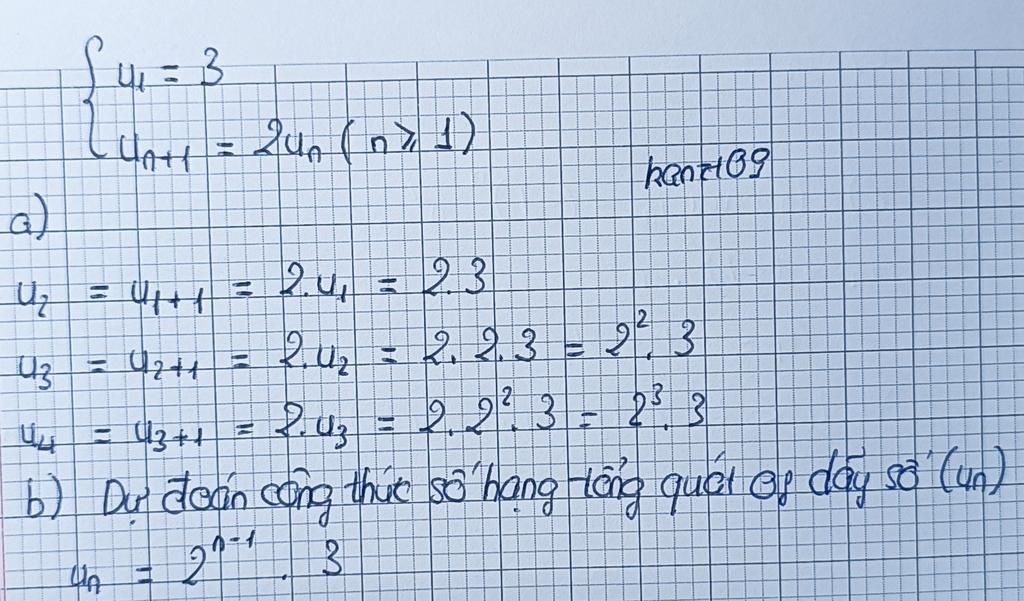 { u₁ = 3
uₙ₊₁ = 2uₙ (n ⩾ 1)
kanz109
a)
u₂ = u₁₊₁ = 2.u₁ = 2.3
u₃ = u₂₊₁ = 2.u₂ = 2.2.3 = 2².3
u₄ = u₃₊₁ = 2.u₃ = 2.2².3 = 2³.3
b) Dự đoán công thức số hạng tổng quát của dãy số (uₙ)
uₙ = 2ⁿ⁻¹ . 3